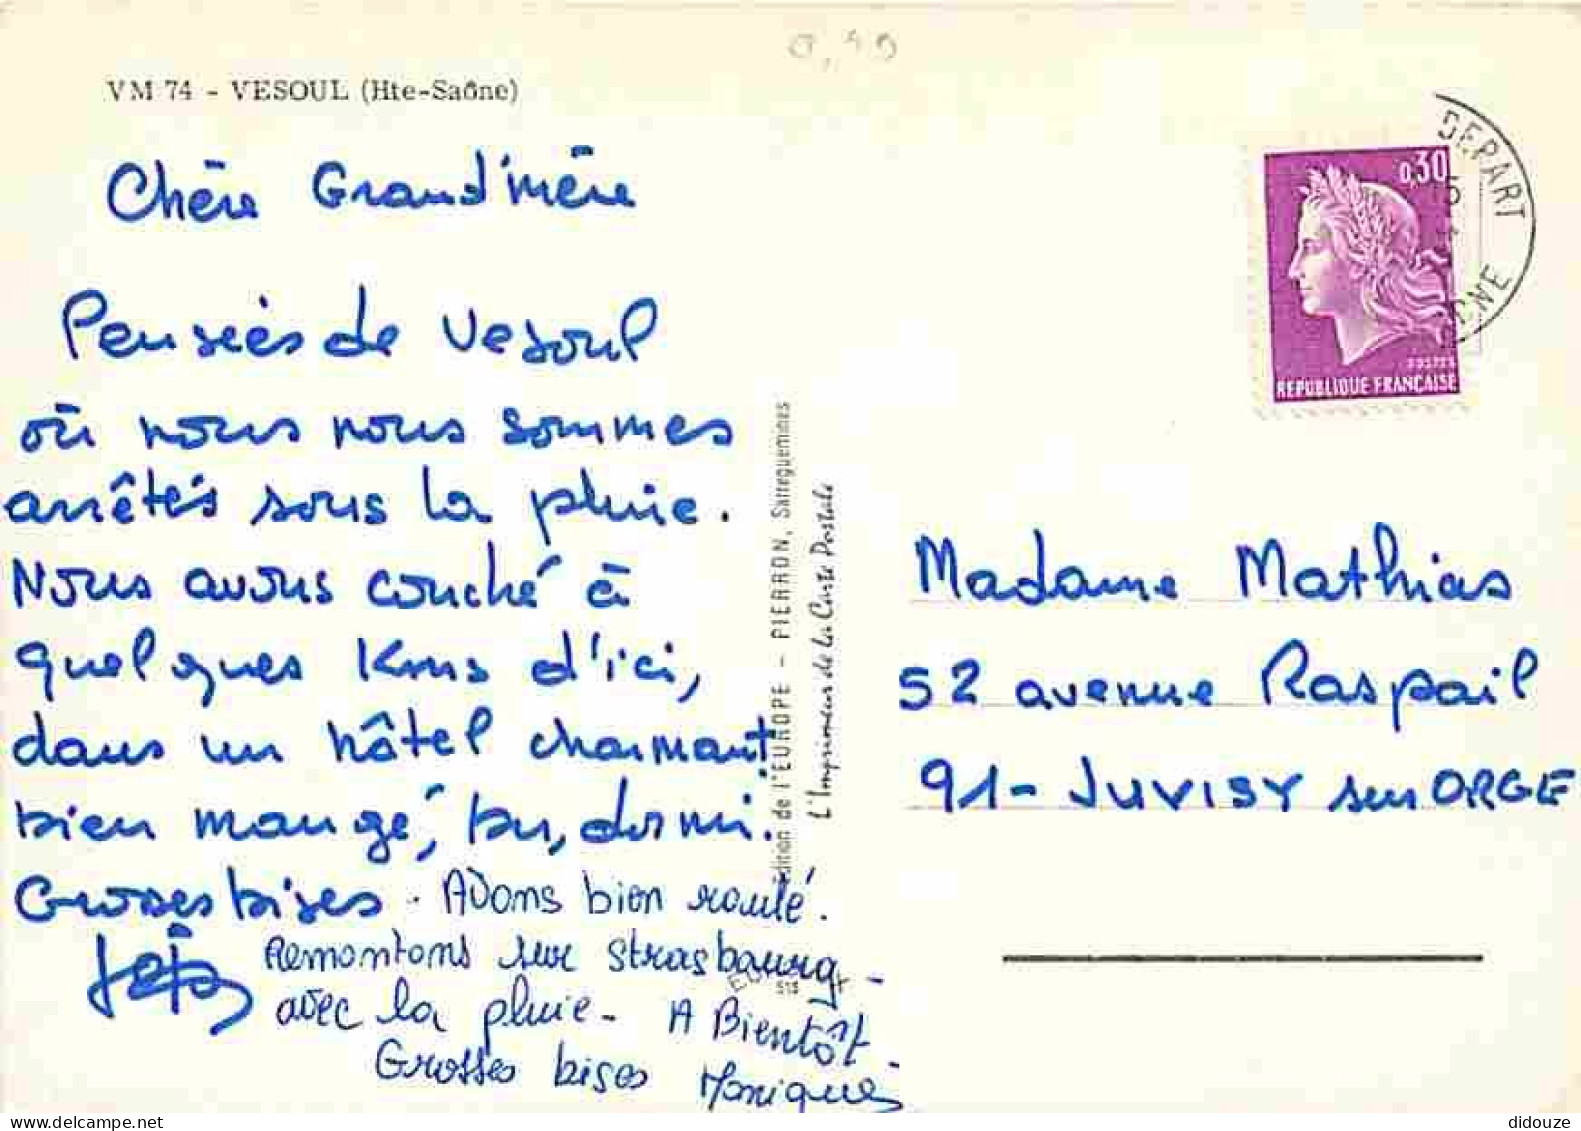 0,40
VM 74 - VESOUL (Hte-Saône)
Chère Grand'mère
Pensées de Vesoul
où nous nous sommes
arrêtés sous la pluie.
Nous avons couché à
quelques Kms d'ici,
dans un hôtel charmant
bien mangé, bu, dormi.
Grosses bises.
Avons bien roulé.
Remontons sur Strasbourg -
avec la pluie - A Bientôt -
Grosses bises Monique
Édition de l'EUROPE - PIERRON, Sarreguemines
L'Imprimeur de la Carte Postale
DEPART
0,30
POSTES
REPUBLIQUE FRANÇAISE
Madame Mathias
52 avenue Raspail
91 - JUVISY sur ORGE
delcampe.net
didouze